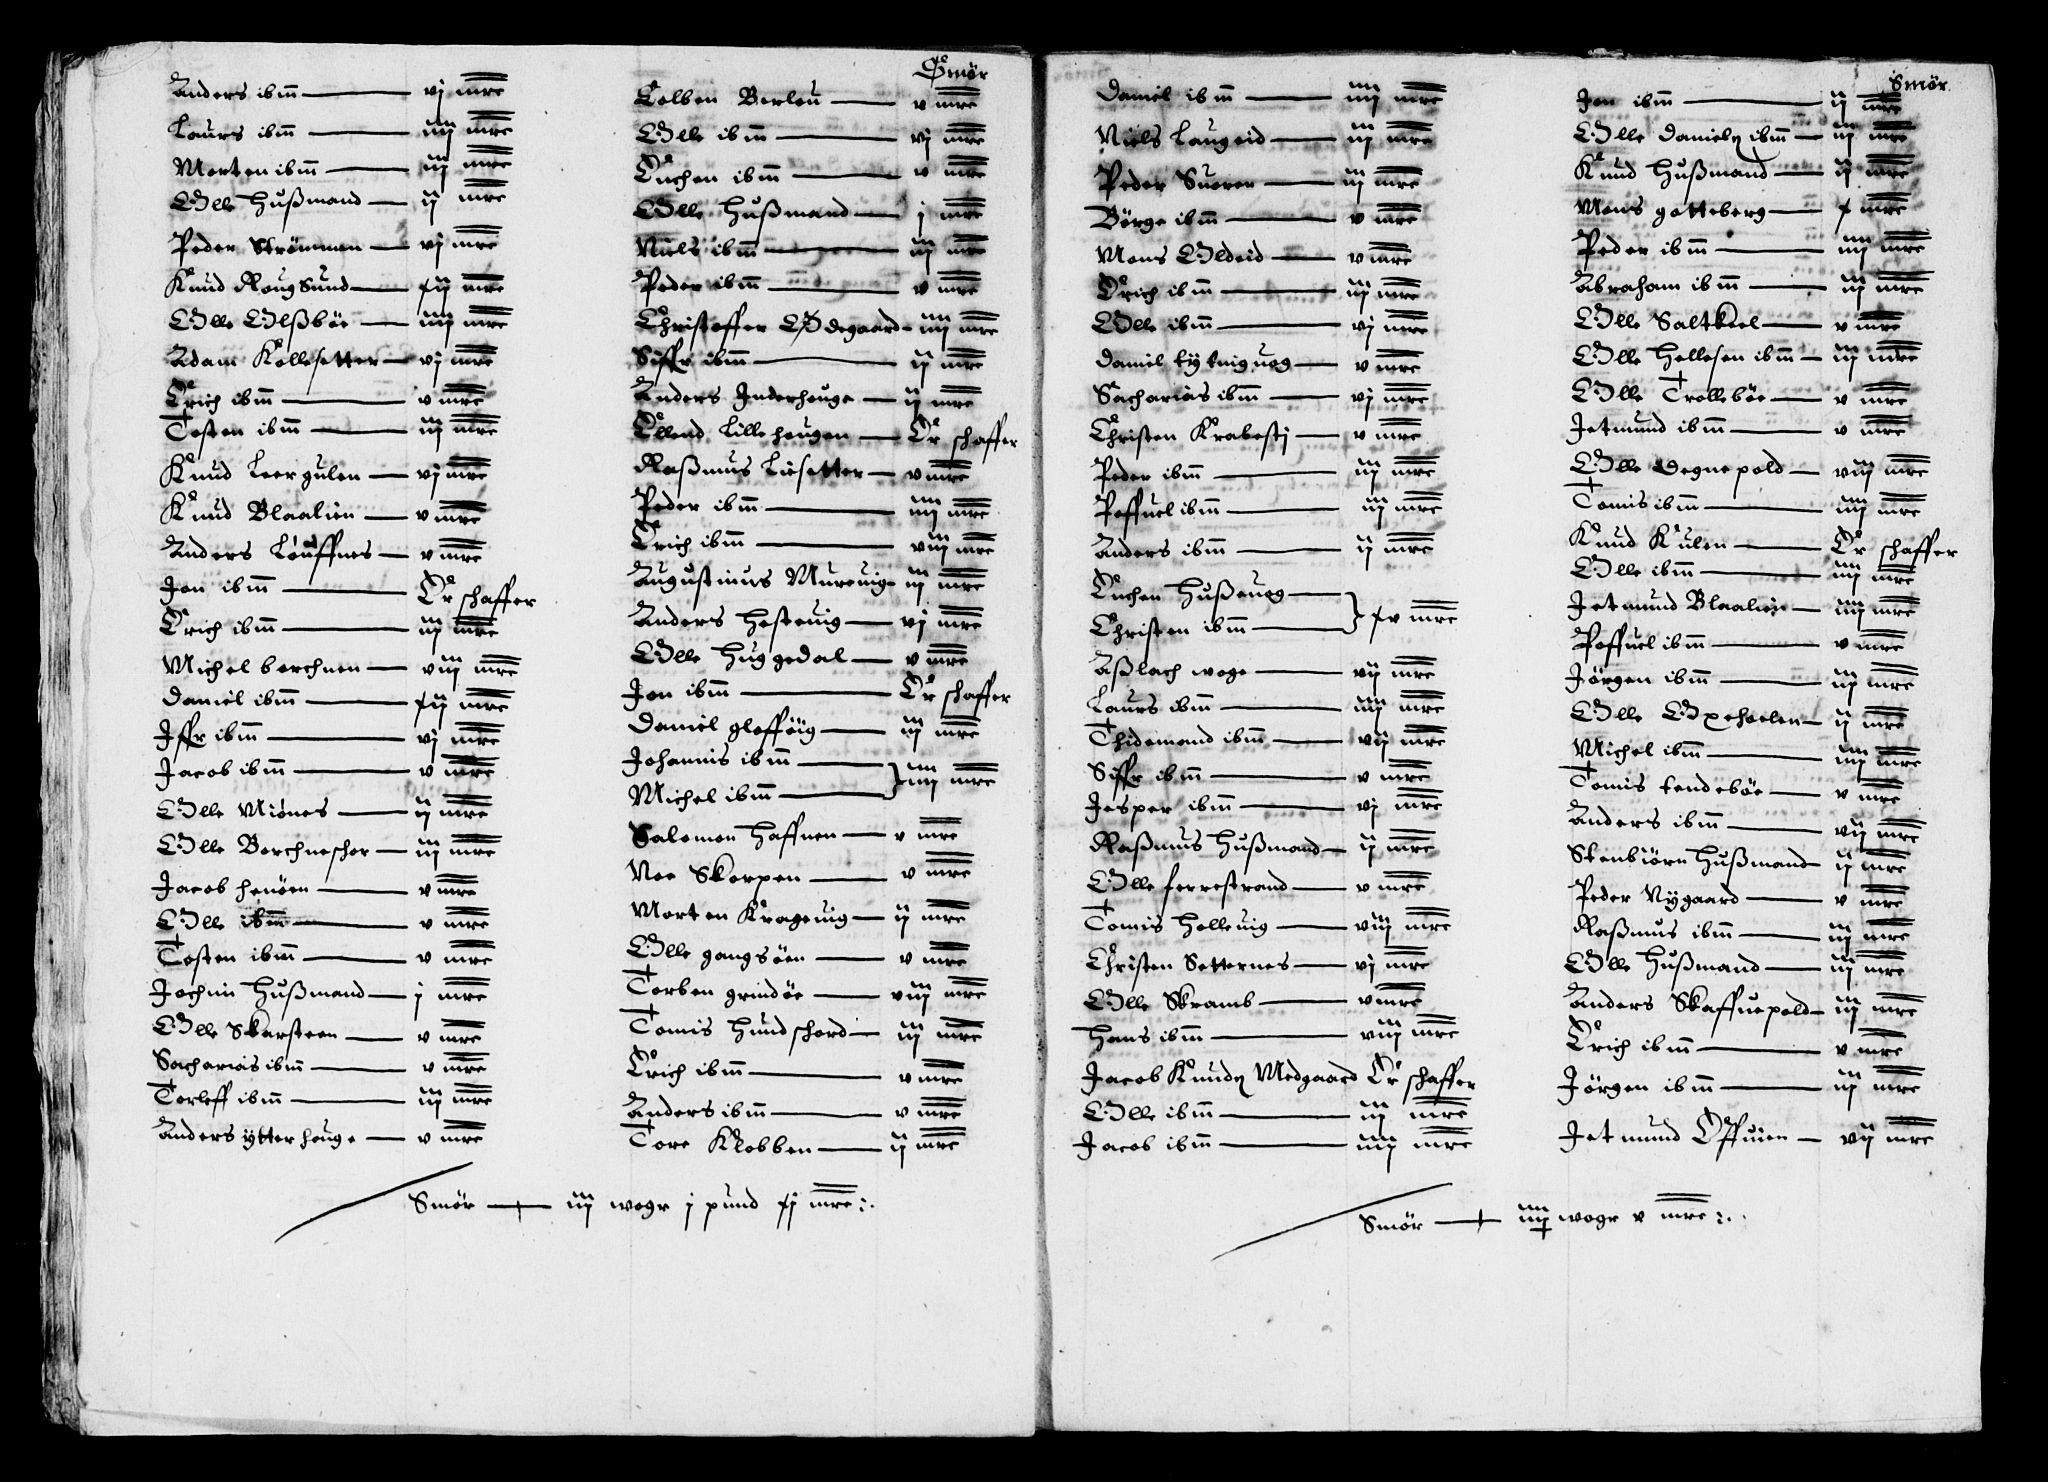 Smör
Anders ibm — vj mrc
Laurs ibm — iiij mrc
Morten ibm — iij mrc
Olle Hußmand — ij mrc
Peder Strömmen — vj mrc
Knud Rougsund — mrc
Olle Olßböe — iiij mrc
Adam Kollesetter — vj mrc
Erich ibm — v mrc
Tosten ibm — iij mrc
Knud Leergulen — vj mrc
Knud Blaalien — v mrc
Anders Löuffnes — v mrc
Jon ibm — Er schaffer
Erich ibm — iij mrc
Michel berchnen — viij mrc
Daniel ibm — mrc
Iffr ibm — vj mrc
Jacob ibm — v mrc
Olle Miönes — ij mrc
Olle Berchneschor — iij mrc
Jacob henöen — v mrc
Olle ibm — v mrc
Tosten ibm — v mrc
Jochim Hußmand — j mrc
Olle Skarsteen — v mrc
Sacharias ibm — v mrc
Torleff ibm — iij mrc
Anders ytterhouge — v mrc
Colben Berleu — v mrc
Olle ibm — vj mrc
Euchen ibm — v mrc
Olle Hußmand — j mrc
Niels ibm — iij mrc
Peder ibm — v mrc
Christoffer Ødegaard — iiij mrc
Siffr ibm — ij mrc
Anders Inderhouge — ij mrc
Ellend Lillehougen — Er schaffer
Raßmus Liesetter — v mrc
Peder ibm — iiij mrc
Erich ibm — viij mrc
Augustinus Mureuig — iij mrc
Anders Hesteuig — vj mrc
Olle Huggedal — v mrc
Jon ibm — Er schaffer
Daniel glofföig — iij mrc
Johannis ibm —
Michel ibm — } iiij mrc
Salomon Haffnen — v mrc
Noe Skorpen — v mrc
Morten Krageuig — ij mrc
Olle gangsöen — v mrc
Torben grindöe — viij mrc
Tomis Hundschord — iij mrc
Erich ibm — v mrc
Anders ibm — v mrc
Tore Klobben — ij mrc
Smör — iij wogr j pund mrc
Smör
Daniel ibm — iiij mrc
Niels Laugeid — iij mrc
Peder Suoren — iij mrc
Börge ibm — v mrc
Mons Oldeid — v mrc
Erich ibm — iij mrc
Olle ibm — vj mrc
Daniel — v mrc
Sacharias ibm — vj mrc
Christen Krabestj — v mrc
Peder ibm — iij mrc
Poffuel ibm — iij mrc
Anders ibm — ij mrc
Euchen Hußeuog —
Christen ibm — } mrc
Aßlach woge — vij mrc
Laurs ibm — iiij mrc
Thidemand ibm — vij mrc
Siffr ibm — v mrc
Jesper ibm — vj mrc
Raßmus Hußmand — ij mrc
Olle ferrestrand — v mrc
Tomis Holleuig — viij mrc
Christen Setternes — vj mrc
Olle Skramb — v mrc
Hans ibm — viij mrc
Jacob Knudß Medgaard Er schaffer
Olle ibm — iij mrc
Jacob ibm — iiij mrc
Jon ibm — ij mrc
Olle Danielß ibm — iij mrc
Knud Hußmand — ij mrc
Mons gotteberg — mrc
Peder ibm — iiij mrc
Abraham ibm — iij mrc
Olle Saltkeel — v mrc
Olle Hellesen ibm — iij mrc
Olle Trolleböe — v mrc
Jetmund ibm — v mrc
Olle Degnepold — viij mrc
Tomis ibm — iiij mrc
Knud Kulen — Er schaffer
Olle ibm — iiij mrc
Jetmund Blaalien — iiij mrc
Poffuel ibm — v mrc
Jörgen ibm — iij mrc
Olle Oxeholen — ij mrc
Michel ibm — iiij mrc
Tomis tendeböe — v mrc
Anders ibm — vij mrc
Stenbiörn Hußmand — ij mrc
Peder Nygaard — v mrc
Raßmus ibm — iij mrc
Olle Hußmand — iij mrc
Anders Skaffuepold — iij mrc
Erich ibm — v mrc
Jörgen ibm — iij mrc
Jetmund Öffuien — vij mrc
Smör — wogr v mrc